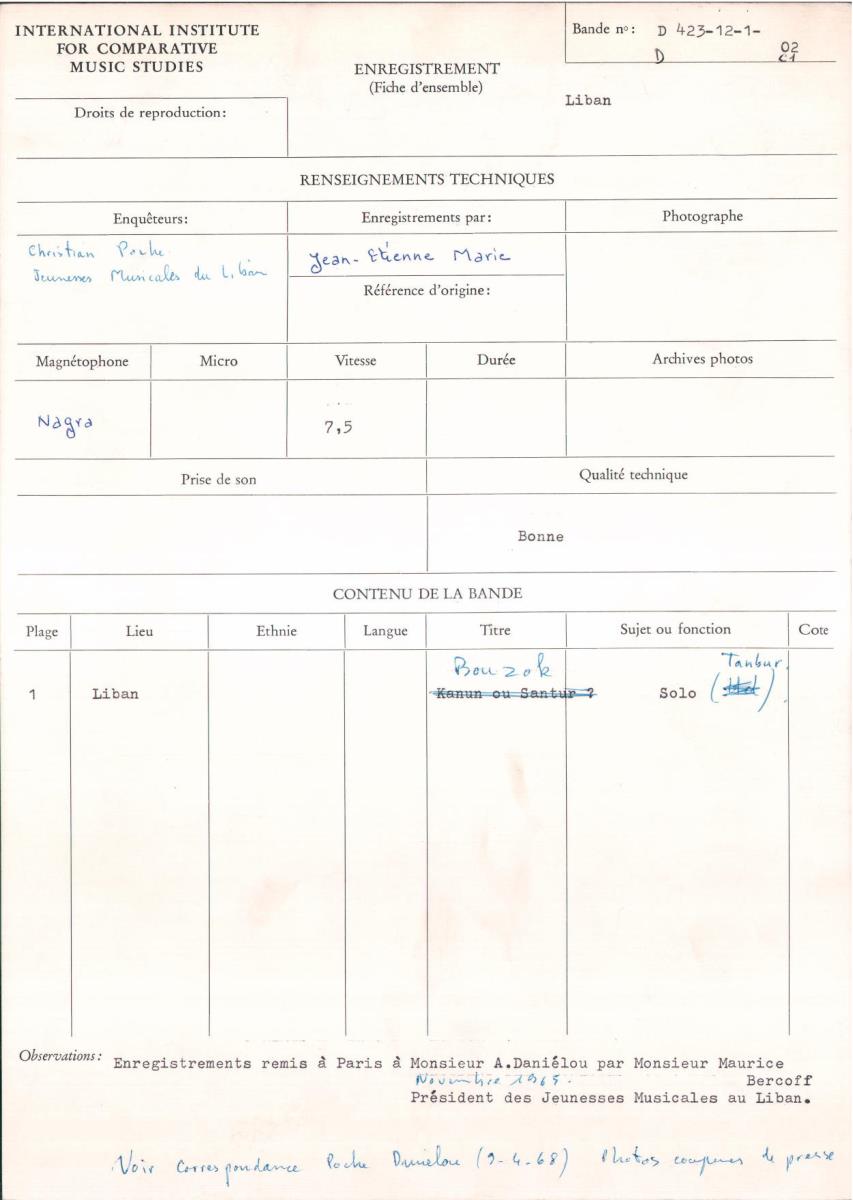 INTERNATIONAL INSTITUTE
FOR COMPARATIVE
MUSIC STUDIES
ENREGISTREMENT
(Fiche d'ensemble)
Bande nº: D 423-12-1-
D 02
Liban
Droits de reproduction:
RENSEIGNEMENTS TECHNIQUES
Enquêteurs:
Enregistrements par:
Photographe
Christian Poche
Jeunesses Musicales du Liban
Jean-Etienne Marie
Référence d'origine:
Magnétophone
Micro
Vitesse
Durée
Archives photos
Nagra
7,5
Prise de son
Qualité technique
Bonne
CONTENU DE LA BANDE
Plage
Lieu
Ethnie
Langue
Titre
Sujet ou fonction
Cote
Bouzok
Tanbur
1
Liban
Kanun ou Santur ?
Solo
Observations: Enregistrements remis à Paris à Monsieur A.Daniélou par Monsieur Maurice
Novembre 1965. Bercoff
Président des Jeunesses Musicales au Liban.
Voir Correspondance Poche Danielou (9-4-68) Photos coupures de presse